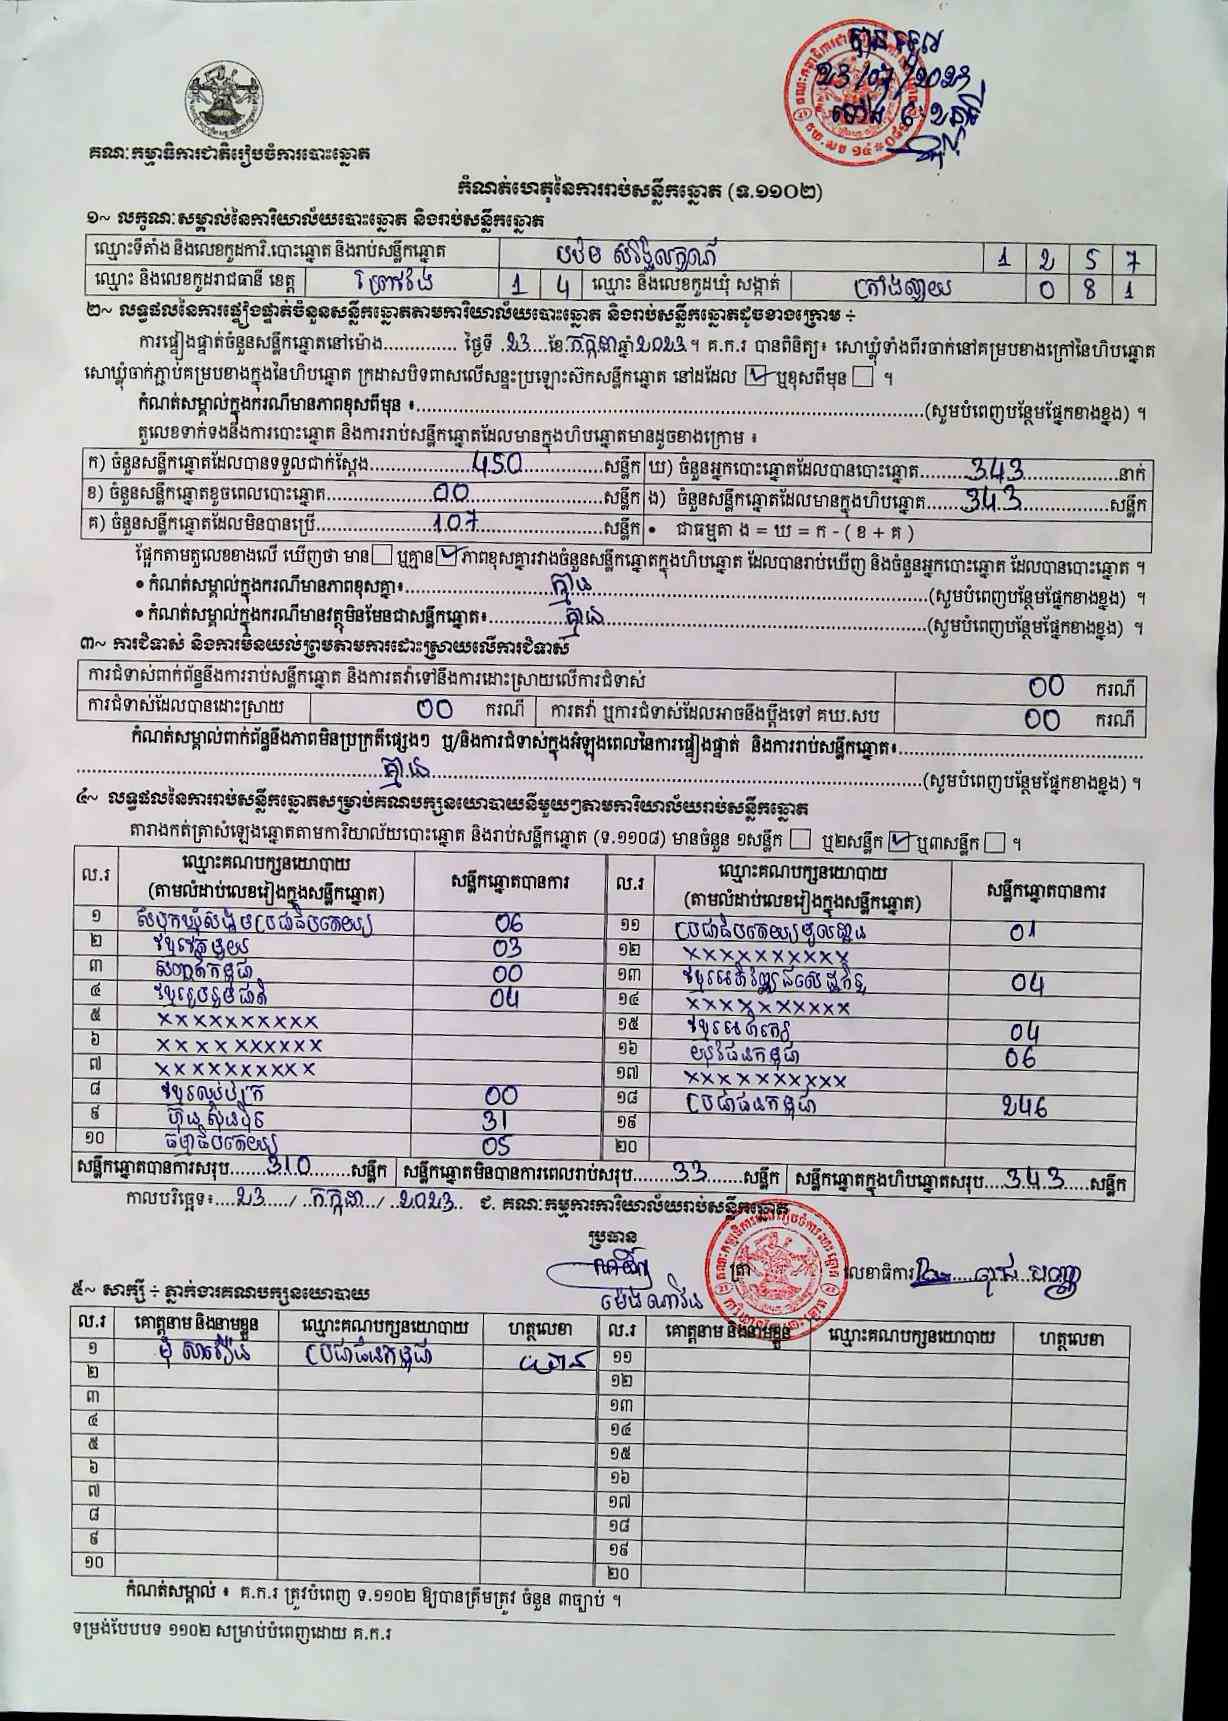 បានទទួល
23/07/2023
គណៈកម្មាធិការជាតិរៀបចំការបោះឆ្នោត
កំណត់ហេតុនៃការរាប់សន្លឹកឆ្នោត (ទ.១១០២)
១~ លក្ខណៈសម្គាល់នៃការិយាល័យបោះឆ្នោត និងរាប់សន្លឹកឆ្នោត
ឈ្មោះទីតាំង និងលេខកូដការិ.បោះឆ្នោត និងរាប់សន្លឹកឆ្នោត 1 2 5 7
ឈ្មោះ និងលេខកូដរាជធានី ខេត្ត ព្រៃវែង 1 4 ឈ្មោះ និងលេខកូដឃុំ សង្កាត់ 0 8 1
២~ លទ្ធផលនៃការផ្ទៀងផ្ទាត់ចំនួនសន្លឹកឆ្នោតតាមការិយាល័យបោះឆ្នោត និងរាប់សន្លឹកឆ្នោតដូចខាងក្រោម ÷
ការផ្ទៀងផ្ទាត់ចំនួនសន្លឹកឆ្នោតនៅម៉ោង.............. ថ្ងៃទី .23....ខែ.កក្កដា.ឆ្នាំ.2023.។ គ.ក.រ បានពិនិត្យ៖ សោឃ្លុំទាំងពីរចាក់នៅគម្របខាងក្រៅនៃហិបឆ្នោត
សោឃ្លុំចាក់ភ្ជាប់គម្របខាងក្នុងនៃហិបឆ្នោត ក្រដាសបិទពាសលើសន្ទះប្រឡោះស៊កសន្លឹកឆ្នោត នៅដដែល ☑ ឬខុសពីមុន ☐ ។
កំណត់សម្គាល់ក្នុងករណីមានភាពខុសពីមុន ៖..............................(សូមបំពេញបន្ថែមផ្នែកខាងខ្នង) ។
តួលេខទាក់ទងនឹងការបោះឆ្នោត និងការរាប់សន្លឹកឆ្នោតដែលមានក្នុងហិបឆ្នោតមានដូចខាងក្រោម ៖
ក) ចំនួនសន្លឹកឆ្នោតដែលបានទទួលជាក់ស្តែង..........450..........សន្លឹក ឃ) ចំនួនអ្នកបោះឆ្នោតដែលបានបោះឆ្នោត..........343..........នាក់
ខ) ចំនួនសន្លឹកឆ្នោតខូចពេលបោះឆ្នោត..........00..........សន្លឹក ង) ចំនួនសន្លឹកឆ្នោតដែលមានក្នុងហិបឆ្នោត..........343..........សន្លឹក
គ) ចំនួនសន្លឹកឆ្នោតដែលមិនបានប្រើ..........107..........សន្លឹក • ជាធម្មតា ង = ឃ = ក - ( ខ + គ )
ផ្អែកតាមតួលេខខាងលើ ឃើញថា មាន ☐ ឬគ្មាន ☑ ភាពខុសគ្នារវាងចំនួនសន្លឹកឆ្នោតក្នុងហិបឆ្នោត ដែលបានរាប់ឃើញ និងចំនួនអ្នកបោះឆ្នោត ដែលបានបោះឆ្នោត ។
• កំណត់សម្គាល់ក្នុងករណីមានភាពខុសគ្នា៖..........គ្មាន..........(សូមបំពេញបន្ថែមផ្នែកខាងខ្នង) ។
• កំណត់សម្គាល់ក្នុងករណីមានវត្ថុមិនមែនជាសន្លឹកឆ្នោត៖..........គ្មាន..........(សូមបំពេញបន្ថែមផ្នែកខាងខ្នង) ។
៣~ ការជំទាស់ និងការមិនយល់ព្រមតាមការដោះស្រាយលើការជំទាស់
ការជំទាស់ពាក់ព័ន្ធនឹងការរាប់សន្លឹកឆ្នោត និងការតវ៉ាទៅនឹងការដោះស្រាយលើការជំទាស់ 00 ករណី
ការជំទាស់ដែលបានដោះស្រាយ 00 ករណី ការតវ៉ា ឬការជំទាស់ដែលអាចនឹងប្តឹងទៅ គឃ.សប 00 ករណី
កំណត់សម្គាល់ពាក់ព័ន្ធនឹងភាពមិនប្រក្រតីផ្សេងៗ ឬ/និងការជំទាស់ក្នុងអំឡុងពេលនៃការផ្ទៀងផ្ទាត់ និងការរាប់សន្លឹកឆ្នោត៖..............................
..........គ្មាន..........(សូមបំពេញបន្ថែមផ្នែកខាងខ្នង) ។
៤~ លទ្ធផលនៃការរាប់សន្លឹកឆ្នោតសម្រាប់គណបក្សនយោបាយនីមួយៗតាមការិយាល័យរាប់សន្លឹកឆ្នោត
តារាងកត់ត្រាសំឡេងឆ្នោតតាមការិយាល័យបោះឆ្នោត និងរាប់សន្លឹកឆ្នោត (ទ.១១០៨) មានចំនួន ១សន្លឹក ☐ ឬ២សន្លឹក ☑ ឬ៣សន្លឹក ☐ ។
ល.រ ឈ្មោះគណបក្សនយោបាយ (តាមលំដាប់លេខរៀងក្នុងសន្លឹកឆ្នោត) សន្លឹកឆ្នោតបានការ ល.រ ឈ្មោះគណបក្សនយោបាយ (តាមលំដាប់លេខរៀងក្នុងសន្លឹកឆ្នោត) សន្លឹកឆ្នោតបានការ
១ សំបុកឃ្មុំសង្គមប្រជាធិបតេយ្យ 06 ១១ 01
២ ខ្មែរតែមួយ 03 ១២ xxxxxxxxxx
៣ សញ្ជាតិកម្ពុជា 00 ១៣ ខ្មែរអភិវឌ្ឍន៍សេដ្ឋកិច្ច 04
៤ ខ្មែររួបរួមជាតិ 04 ១៤ xxxxxxxxxx
៥ xxxxxxxxxx ១៥ 04
៦ xxxxxxxxxx ១៦ យុវជនកម្ពុជា 06
៧ xxxxxxxxxx ១៧ xxxxxxxxxx
៨ 00 ១៨ ប្រជាជនកម្ពុជា 246
៩ ហ៊្វុនស៊ិនប៉ិច 31 ១៩
១០ ធម្មាធិបតេយ្យ 05 ២០
សន្លឹកឆ្នោតបានការសរុប.......310.......សន្លឹក សន្លឹកឆ្នោតមិនបានការពេលរាប់សរុប.......33.......សន្លឹក សន្លឹកឆ្នោតក្នុងហិបឆ្នោតសរុប.....343.....សន្លឹក
កាលបរិច្ឆេទ៖....23...../ ..កក្កដា.../ ..2023.. ជ. គណៈកម្មការការិយាល័យរាប់សន្លឹកឆ្នោត
ប្រធាន
ត្រា លេខាធិការ
៥~ សាក្សី ÷ ភ្នាក់ងារគណបក្សនយោបាយ
ល.រ គោត្តនាម និងនាមខ្លួន ឈ្មោះគណបក្សនយោបាយ ហត្ថលេខា ល.រ គោត្តនាម និងនាមខ្លួន ឈ្មោះគណបក្សនយោបាយ ហត្ថលេខា
១ ប្រជាជនកម្ពុជា ១១
២ ១២
៣ ១៣
៤ ១៤
៥ ១៥
៦ ១៦
៧ ១៧
៨ ១៨
៩ ១៩
១០ ២០
កំណត់សម្គាល់ ៖ គ.ក.រ ត្រូវបំពេញ ទ.១១០២ ឱ្យបានត្រឹមត្រូវ ចំនួន ៣ច្បាប់ ។
ទម្រង់បែបបទ ១១០២ សម្រាប់បំពេញដោយ គ.ក.រ